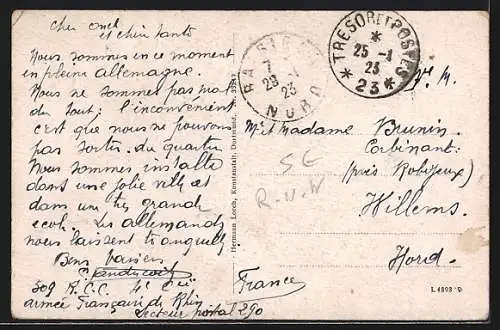 Cher oncle
et chère tante
Nous sommes en ce moment
en pleine allemagne.
Nous ne sommes pas mal
du tout; l'inconvenient
c'est que nous ne pouvons
pas sortir du quartier
Nous sommes installé
dans une jolie ville et
dans une très grande
école. Les allemands
nous laissent tranquille
Bons baisers
509 R.C.C. 4e Cie
armée Française du Rhin
Secteur postal 290
Hermann Lorch, Kunstanstalt, Dortmund.
NORD
7
28 -1
23
TRESOR ET POSTES
*
25 -1
23
* 23 *
F. M.
Met Madame Brunin
(près Roubaix)
Willems.
Nord.
France
SG
R.N.W